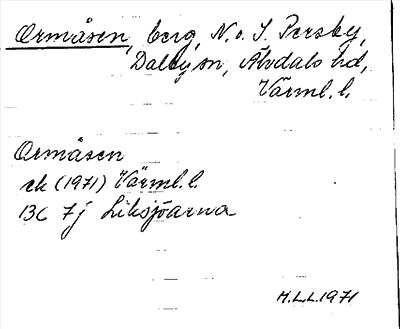 Ormåsen, berg, N. o. S. Persby,
Dalby sn, Älvdals hd,
Värml. l.
Ormåsen
ek (1971) Värml. l.
13C 7j Liksjöarna
H.L.L. 1971